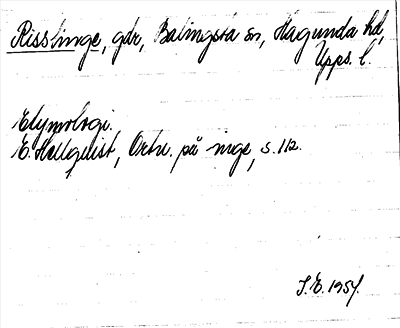 Risslinge, gdr, Balingsta sn, Hagunda hd,
Upps. l.
Etymologi.
E. Hellquist, Ortn. på inge, s. 112.
S.E. 1954.